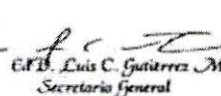 Ed.D. Luis C. Gutiérrez M
Secretaría General